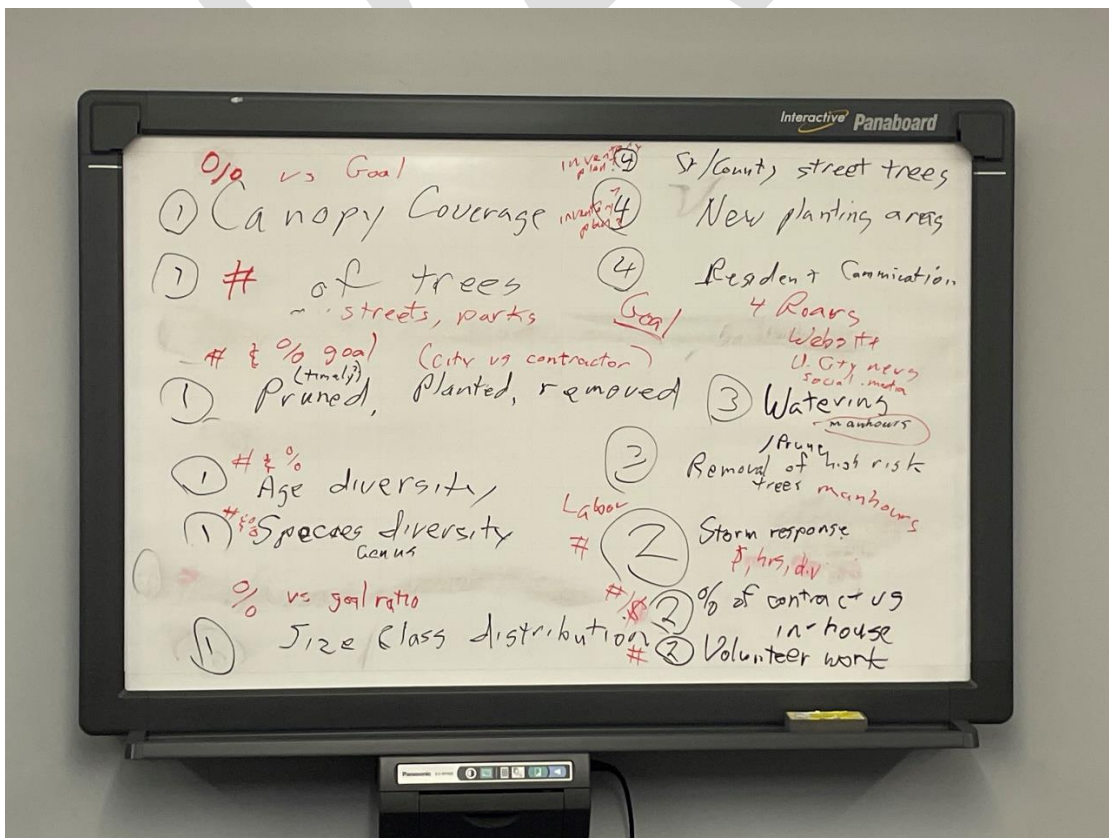 Interactive Panaboard
% vs Goal
① Canopy Coverage
① # of trees
~ streets, parks
# & % goal (city vs contractor)
(timely?)
① Pruned, planted, removed
# & %
① Age diversity
① # & % Species diversity
Genus
% vs goal ratio
① Size Class distribution
inventory plan? ④ St/County street trees
inventory plan? ④ New planting areas
④ Resident Commication
Goal 4 Roars
Website
U. City news
social media
③ Watering
- manhours
/Prune
③ Removal of high risk
trees manhours
Labor
# ② Storm response
$, hrs, div
#/$ ② % of contract vs
in-house
# ② Volunteer work
Panasonic